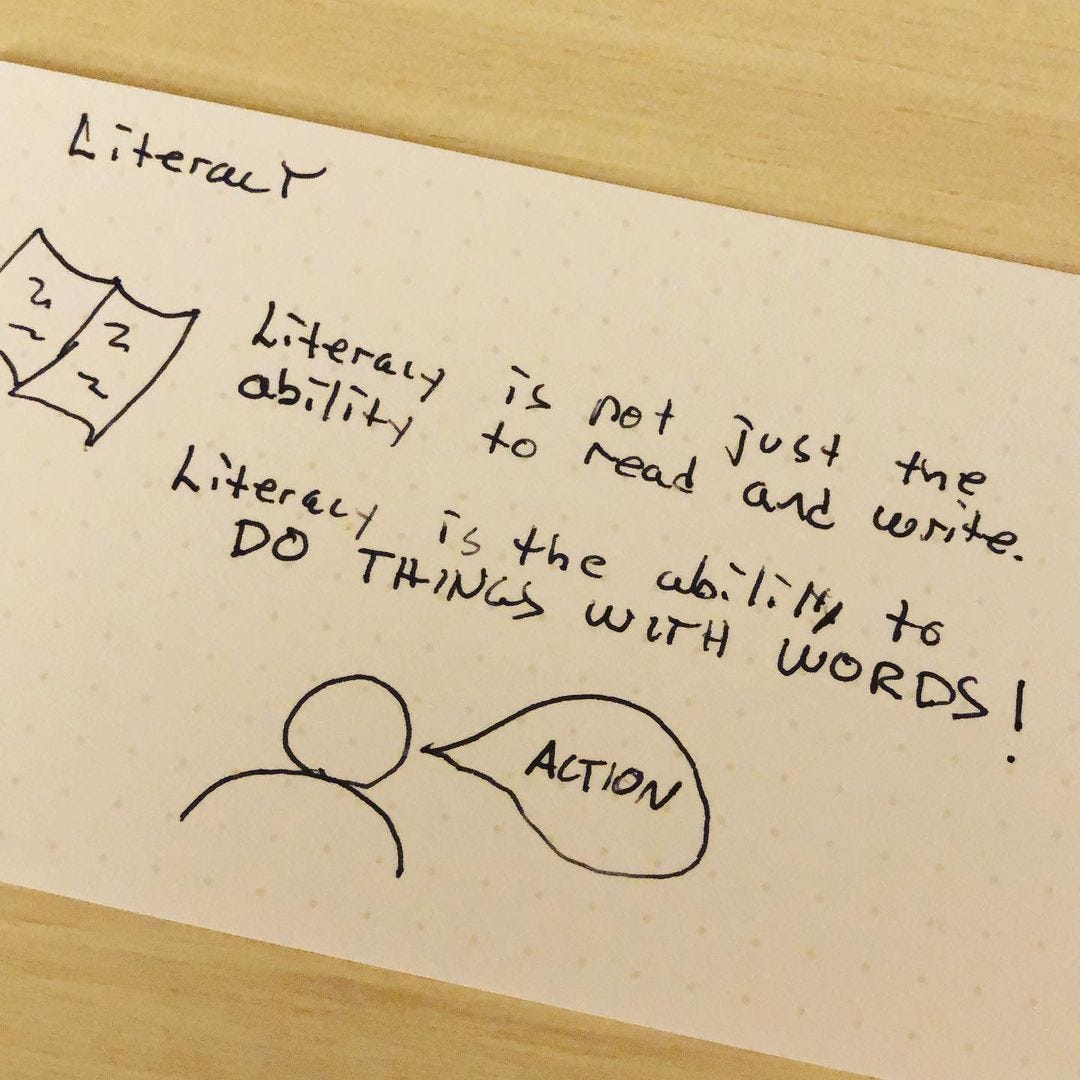 Literacy
Literacy is not just the
ability to read and write.
Literacy is the ability to
DO THINGS WITH WORDS!
ACTION